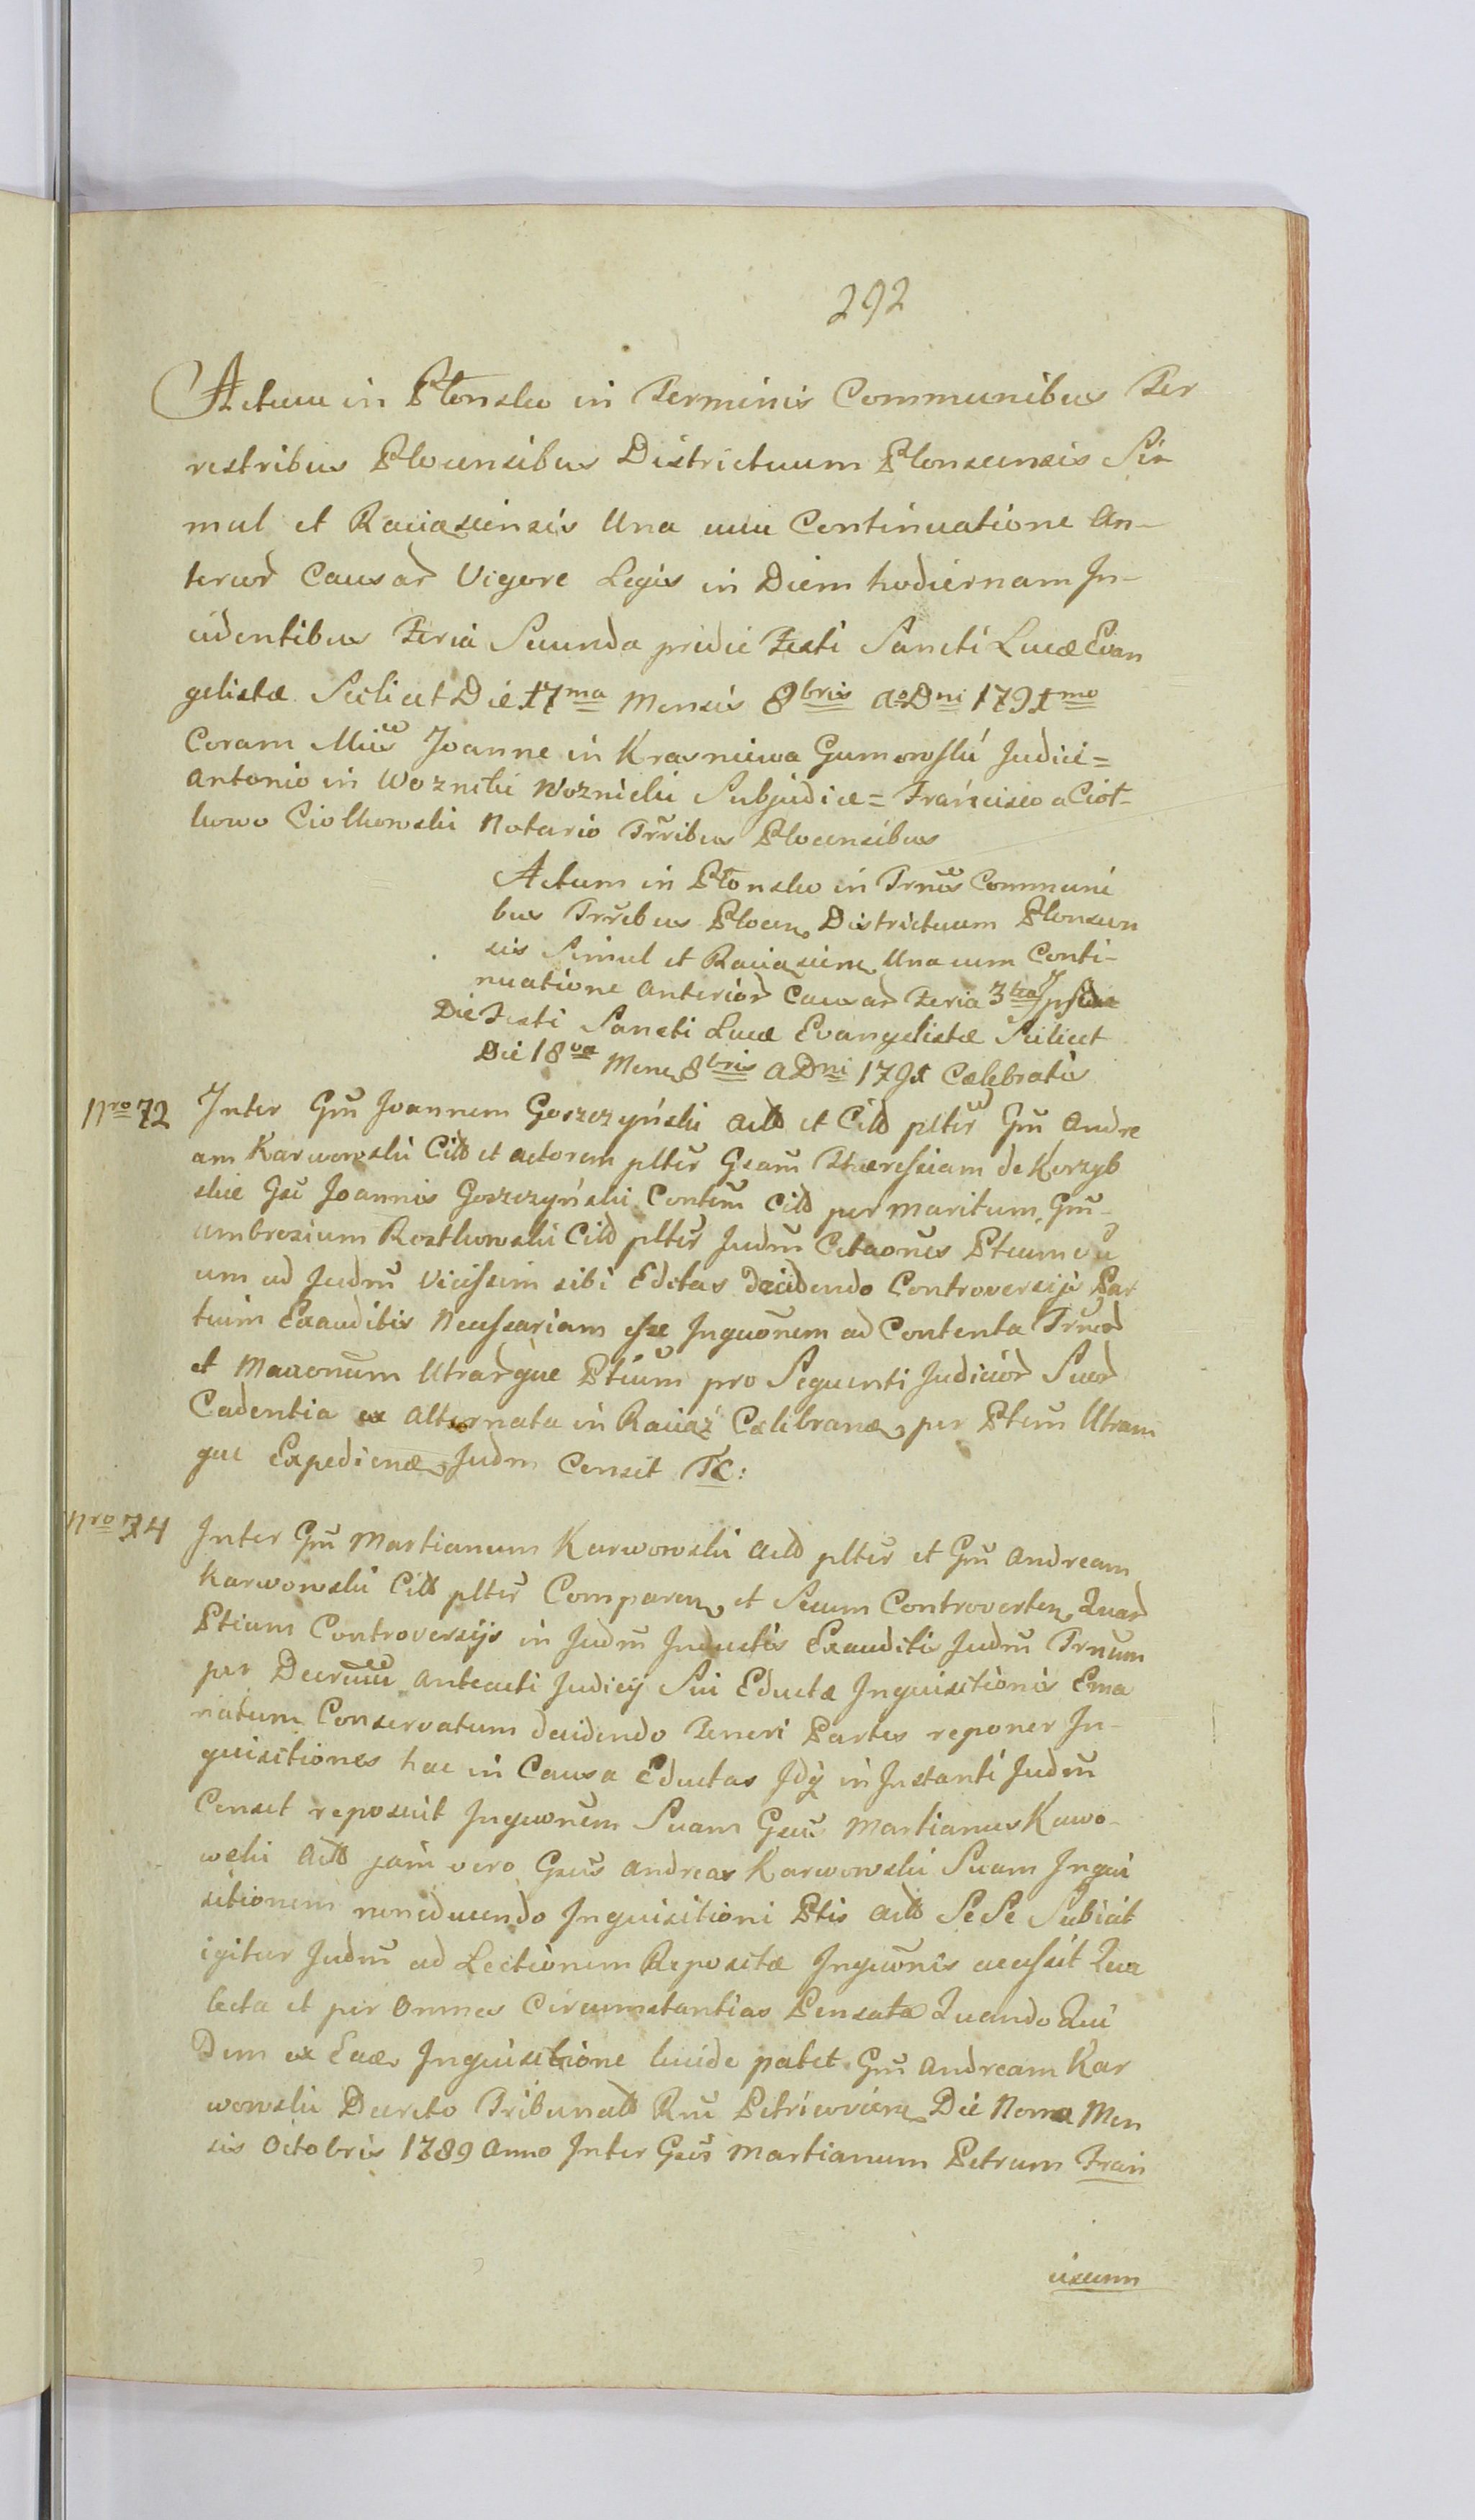 292
Actum in Płonsko in Terminis Communibus Ter
restribus Plocensibus Districtuum Plonscensis Si-
mul et Raciąscensis Una cum Continuatione An-
terior Causar Vigore Legis in Diem hodiernam In-
cidentibus Feria Secunda pridie Festi Sancti Lucæ Evan
gelistæ Scilicet Die 17ma Mensis 8bris Ao Dni 1791mo
Coram Mcis Joanne in Krasniewa Gumowski Judice =
Antonio in Wozniki Woznicki Subjudice = Francisco a Cioł-
kowo Ciołkowski Notario Trribus Plocensibus
Actum in Płonsko in Trnis Communi
bus Trribus Plocen Districtuum Plonscen
sis Simul et Raciąscen Una cum Conti-
nuatione Anterior Causar Feria 3tia Ipso
Die Festi Sancti Lucæ Evangelistæ Scilicet
Die 18va Mens 8bris A Dni 1791 Celebratis
Nro 72 Inter Gm Joannem Goszczyński Actt et Citt plter Gm Andre
am Karwowski Citt et Actorem plter Gsam Theressiam de Korzyb
skie Gsi Joannis Goszczyński Contem Citt per maritum, Gm
Ambrosium Rostkowski Citt plter Judm Citaones Ptium
um ad Judm Vicissim sibi Editas Decidendo Controversijs Par
tium Exauditis Necessariam esse Inquonem ad Contenta Trnor
et Maconum Utrarque Ptium pro Sequenti Judicior Suor
Cadentia ex Alternata in Raciąż Celebranæ per Ptem Utram
que Expedienæ Judm Censet TC:
Nro 74 Inter Gm Martianum Karwowski Actt plter et Gm Andream
Karwowski Citt plter Comparen et Secum Controverten Quar
Ptium Controversijs in Judm Inductis Exauditis Judm Trnum
per Decrum Anteacti Judicij Sui Eductæ Inquisitionis Ema
natum Conservatum decidendo Teneri Partes reponer In-
quisitiones hac in Causa Eductas Idq in Instanti Judm
Censet reposuit Inquonem Suam Gsus Martianus Kawo-
wski Actt jam vero Gsus Andreas Karwowski Suam Inqui
sitionem non educendo Inquisitioni Ptis Actt Se Se Subicit
igitur Judm ad Lectionem Repositæ Inquonis accessit Qua
lecta et per Omnes Circumstantias Pensata Quando Qui
Dem ex Eaæ Inquisitione lucide patet Gm Andream Kar
wowski Decreto Tribunalt Rni Petricovien Die Nona Men
sis Octobris 1789 Anno Inter Gsos Martianum Petrum Fran
ciscum